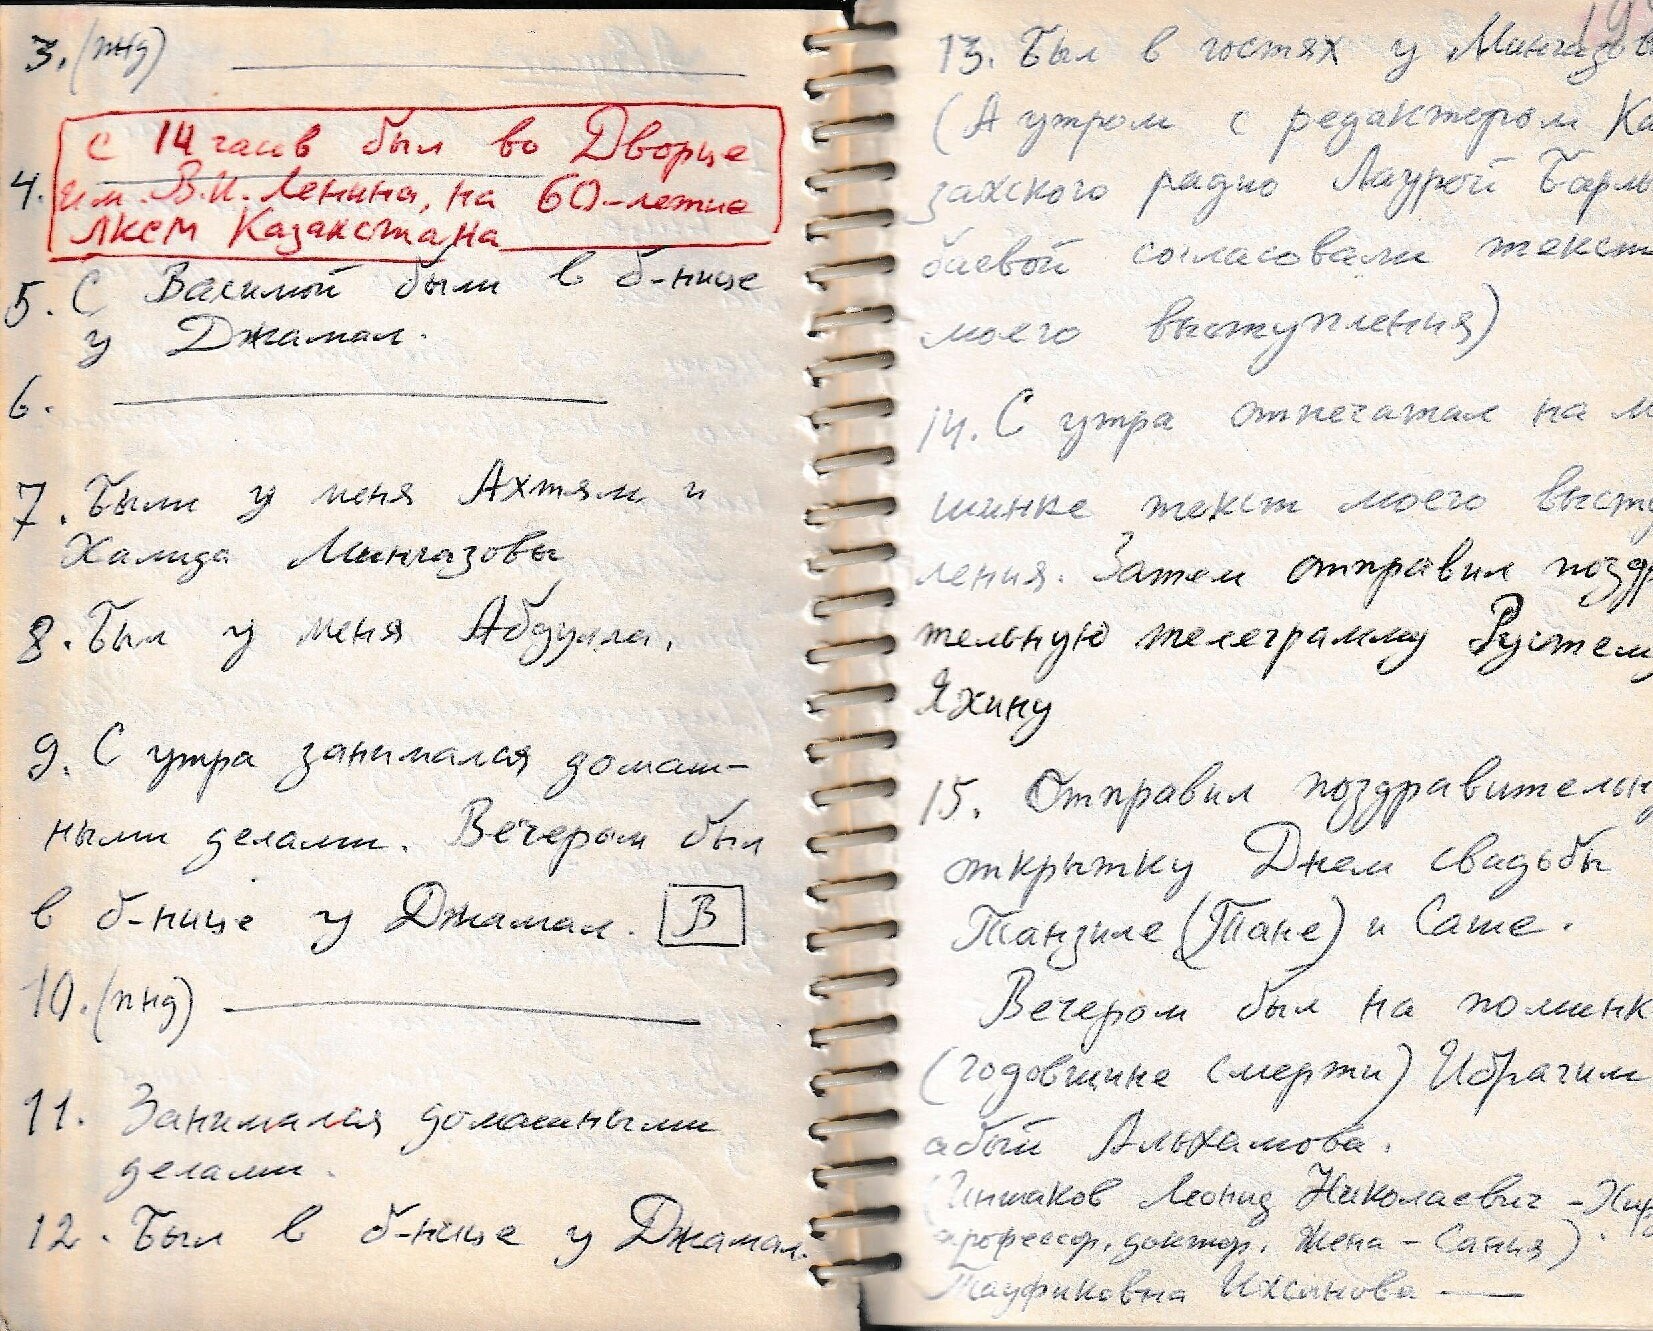 3. (пнд)
с 14 часов был во Дворце
4. им. В.И. Ленина, на 60-летие
ЛКСМ Казахстана
5. С Василой были в б-нице
у Джамал.
6.
7. Были у меня Ахтям и
Халида Мингазовы
8. Был у меня Абдулла.
9. С утра занимался домаш-
ными делами. Вечером был
в б-нице у Джамал. В
10. (пнд)
11. Занимался домашными
делами.
12. Был в б-нице у Джамал.
19
13. Был в гостях у Мингазов
(А утром с редактором Ка
захского радио Лаурой Барл
баевой согласовали текст
моего выступления)
14. С утра отпечатал на м
шинке текст моего высту
ления. Затем отправил поздр
тельную телеграмму Рустем
Яхину
15. Отправил поздравительн
открытку Днем свадьбы
Танзиле (Тане) и Саше.
Вечером был на поминк
(годовщине смерти) Ибрагим
абый Альхамова.
Леонид Николаевич - Хир
профессор, доктор. Жена - Сания)
Тауфиковна Ихсанова